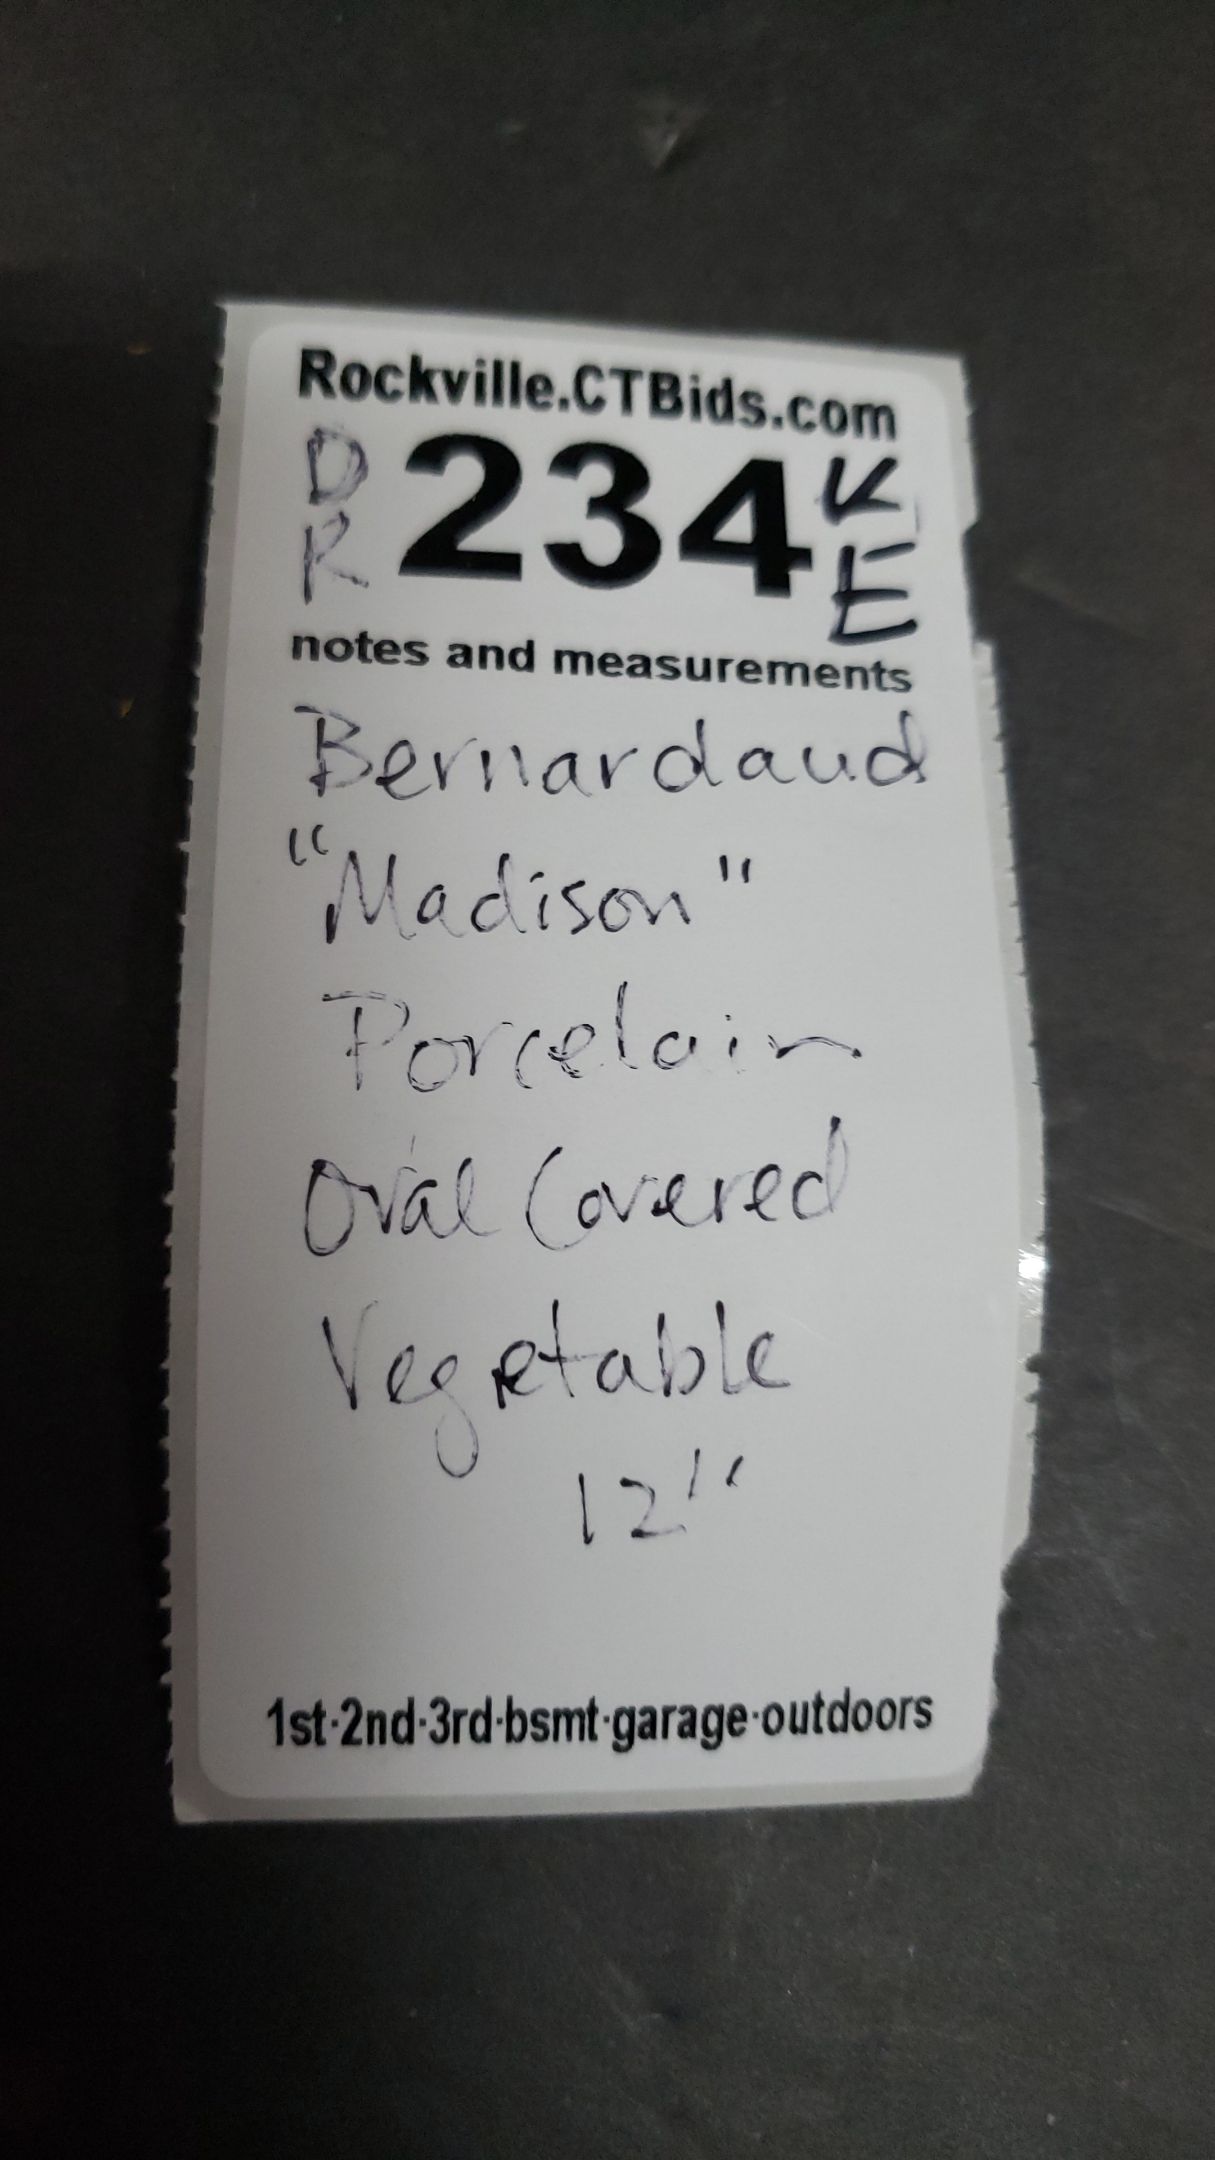 Rockville.CTBids.com
D R 234 K E
notes and measurements
Bernardaud
"Madison"
Porcelain
Oval Covered
Vegetable
12"
1st·2nd·3rd·bsmt·garage·outdoors